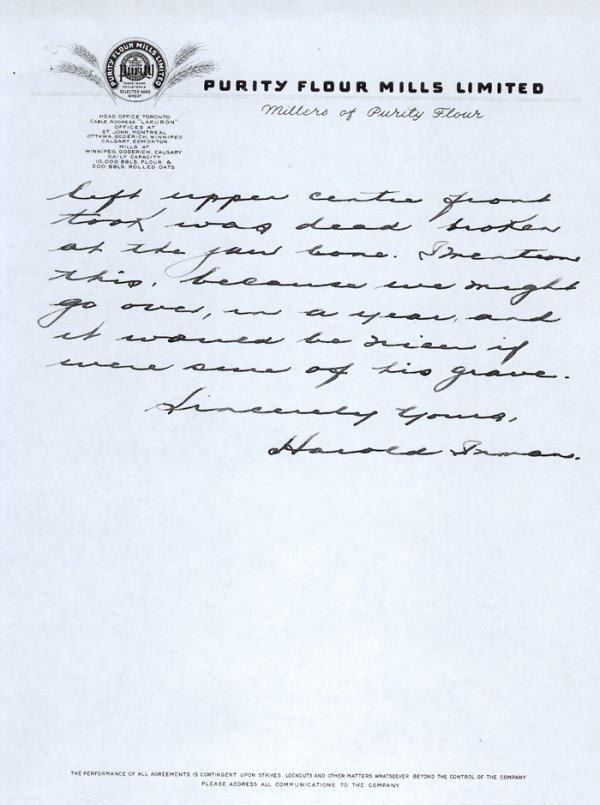 PURITY FLOUR MILLS LIMITED
Purity
TRADE MARK
REGISTERED
SELECTED HARD
WHEAT
PURITY FLOUR MILLS LIMITED
Millers of Purity Flour
HEAD OFFICE TORONTO
CABLE ADDRESS "LAKURON"
OFFICES AT
ST. JOHN, MONTREAL
OTTAWA, GODERICH, WINNIPEG
CALGARY, EDMONTON
MILLS AT
WINNIPEG, GODERICH, CALGARY
DAILY CAPACITY
10,000 BBLS. FLOUR &
300 BBLS. ROLLED OATS
left upper centre front
tooth was dead broken
at the jaw bone. I mention
this, because we might
go over, in a year, and
it would be nicer if
were sure of his grave.
Sincerely Yours,
Harold Inman.
THE PERFORMANCE OF ALL AGREEMENTS IS CONTINGENT UPON STRIKES, LOCKOUTS AND OTHER MATTERS WHATSOEVER BEYOND THE CONTROL OF THE COMPANY
PLEASE ADDRESS ALL COMMUNICATIONS TO THE COMPANY